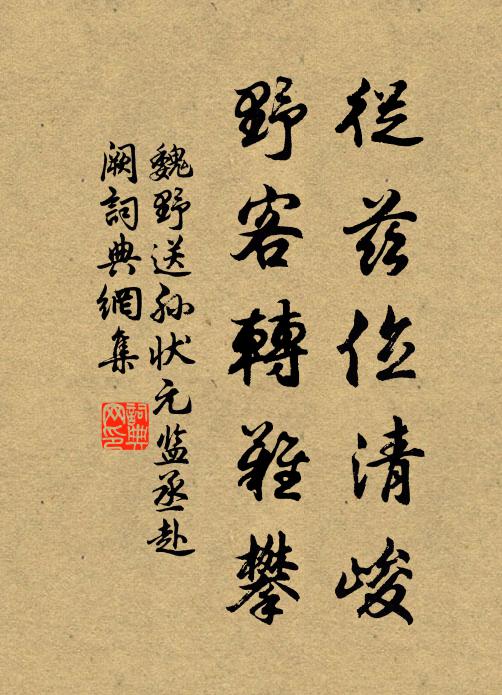 從茲位清峻
野客轉難攀
魏野送孙状元监丞赴
阙詞典網集
詞典
网印